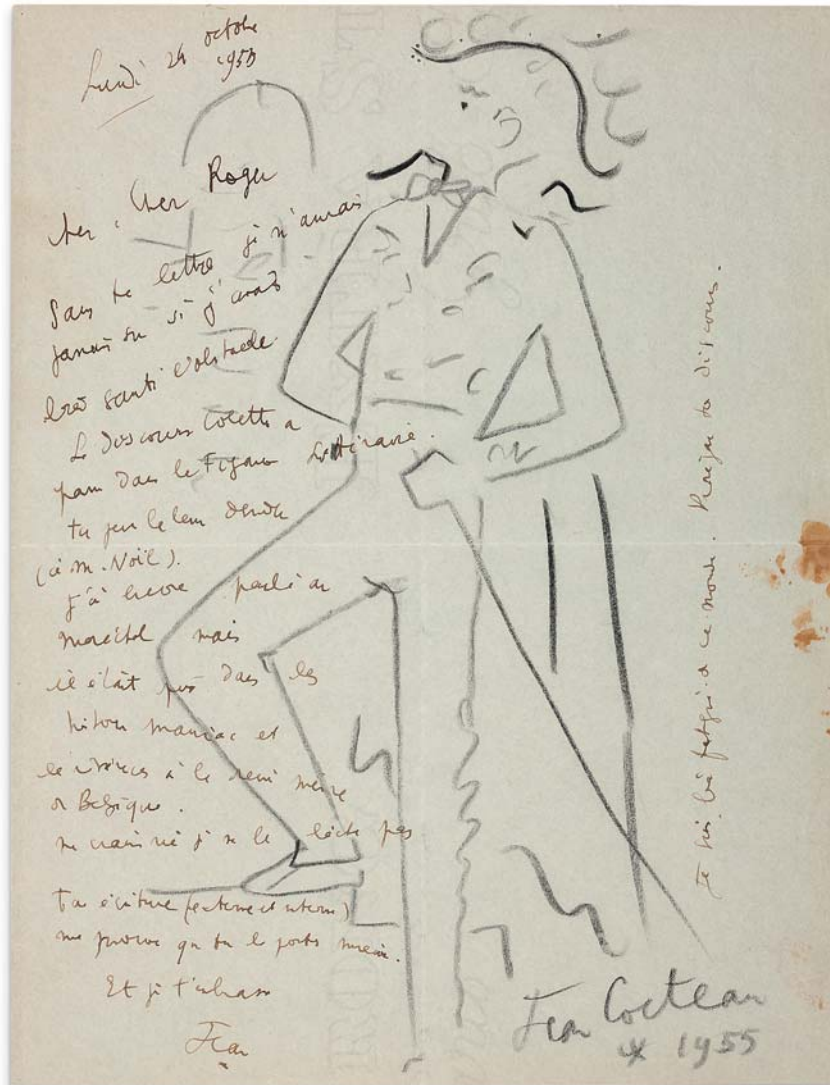 Lundi 24 octobre
1955
Cher, Cher Roger
Sans ta lettre je n'aurais
jamais su si j'avais
bien sauté l'obstacle.
Le discours Colette a
paru dans le Figaro Littéraire.
tu peux le leur demander
(à M. Noël).
J'ai encore parlé au
maréchal mais
il était pris dans les
et
à la reine mère
de Belgique.
ne crains rien je ne le lâche pas
Ta écriture (externe et interne)
me prouve que tu te portes mieux.
Et je t'embrasse
Jean
Je suis très fatigué de ce monde. de discours.
Jean Cocteau
* 1955